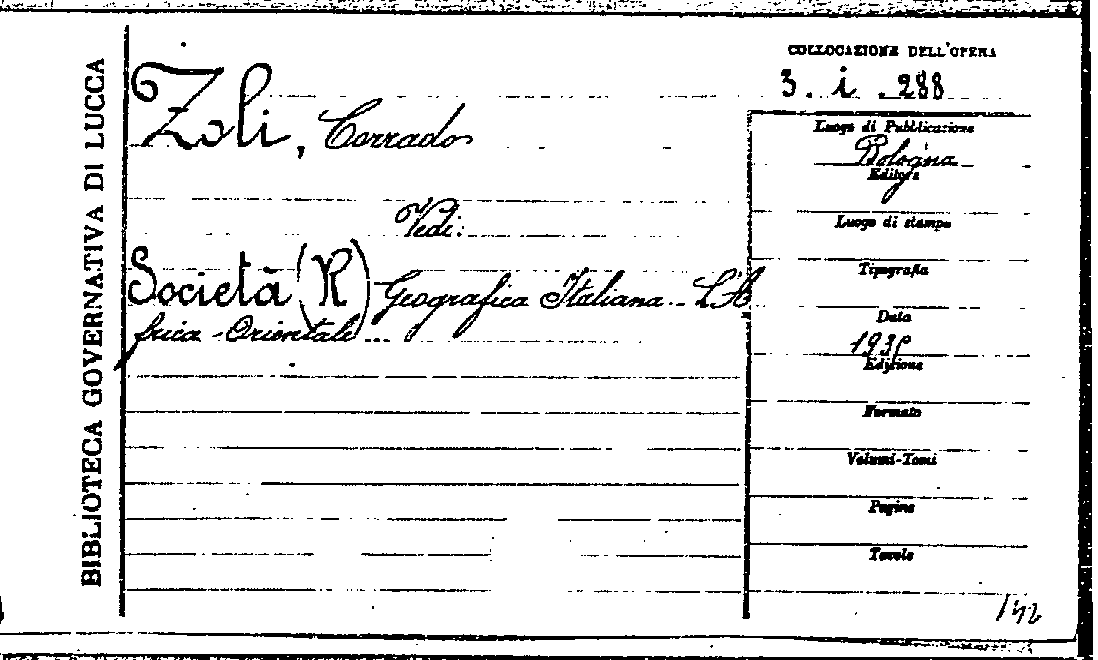 BIBLIOTECA GOVERNATIVA DI LUCCA
Zoli, Corrado
Vedi:
Società (R) Geografica Italiana - L'A
frica - Orientale ...
COLLOCAZIONE DELL'OPERA
3. i. 288
Luogo di Pubblicazione
Bologna
Editore
Luogo di stampa
Tipografia
Data
Edizione
Formato
Volumi-Tomi
Pagine
Tavole